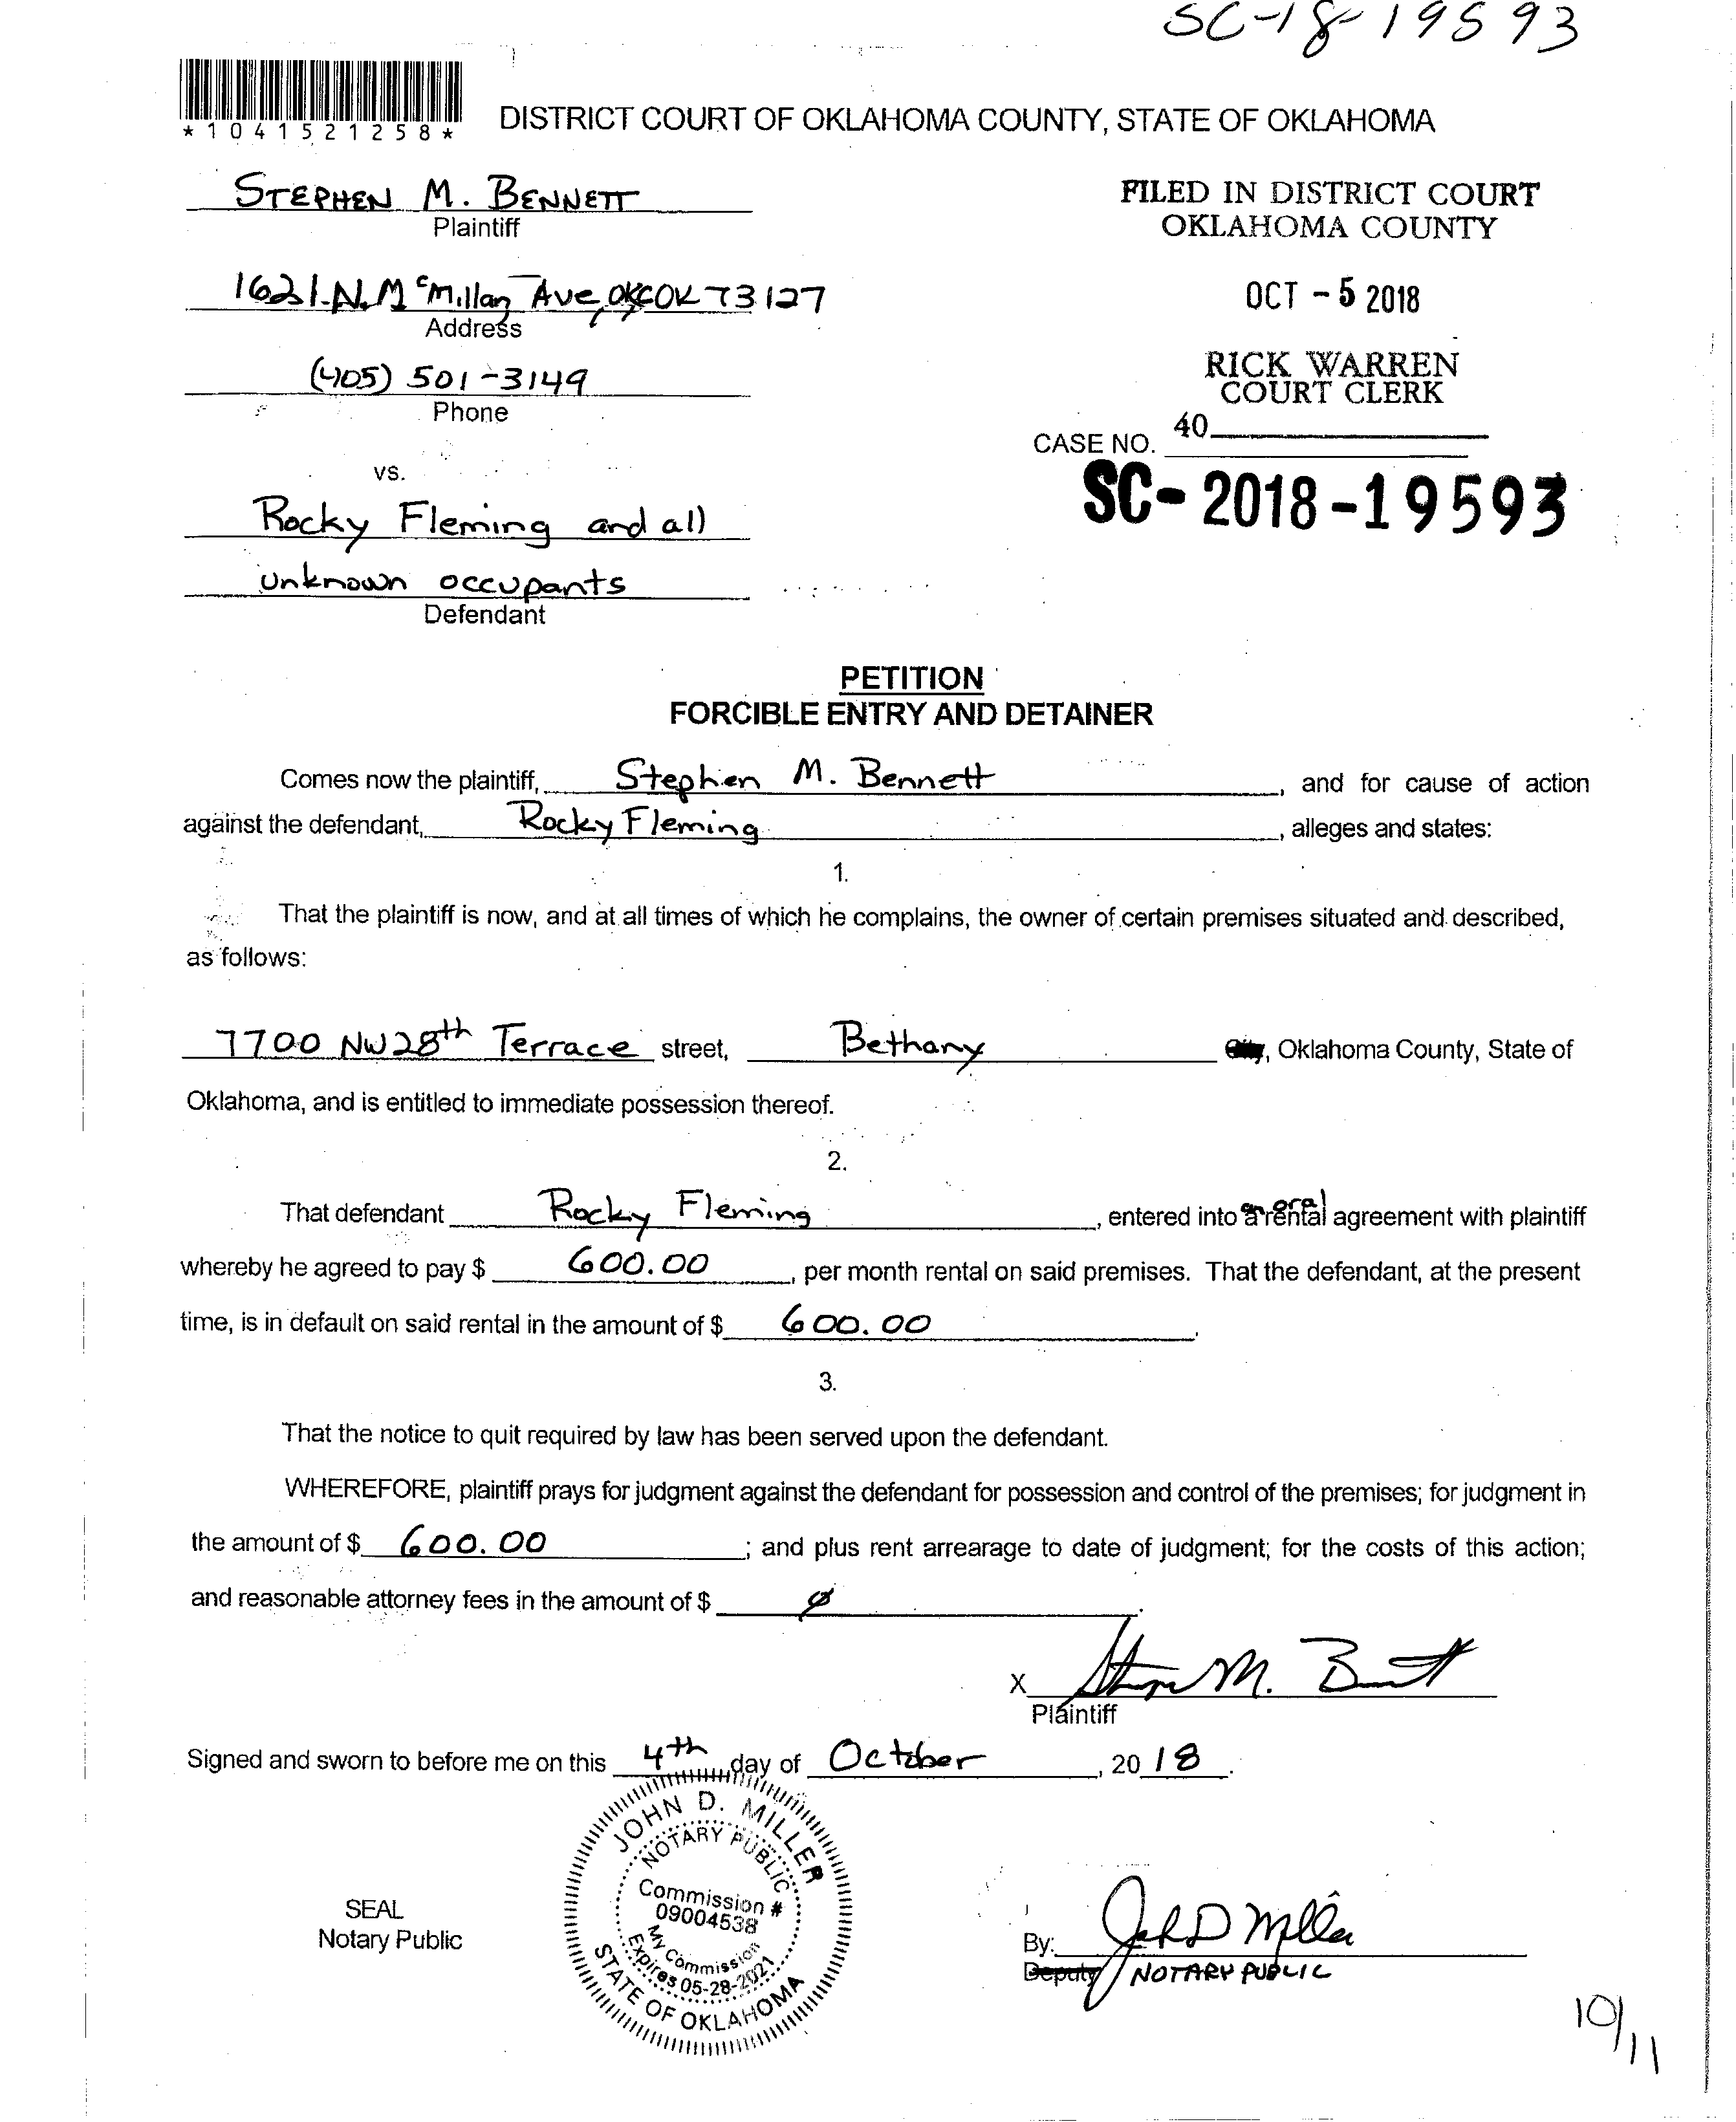 SC-18-19593
*1041521258*
DISTRICT COURT OF OKLAHOMA COUNTY, STATE OF OKLAHOMA
STEPHEN M. BENNETT
Plaintiff
1621 N. McMillan Ave, OKC OK 73127
Address
(405) 501-3149
Phone
vs.
Rocky Fleming and all
unknown occupants
Defendant
FILED IN DISTRICT COURT
OKLAHOMA COUNTY
OCT - 5 2018
RICK WARREN
COURT CLERK
40
CASE NO.
SC-2018-19593
PETITION
FORCIBLE ENTRY AND DETAINER
Comes now the plaintiff, Stephen M. Bennett, and for cause of action
against the defendant, Rocky Fleming, alleges and states:
1.
That the plaintiff is now, and at all times of which he complains, the owner of certain premises situated and described,
as follows:
7700 NW 28th Terrace street, Bethany City, Oklahoma County, State of
Oklahoma, and is entitled to immediate possession thereof.
2.
That defendant Rocky Fleming, entered into a an oral rental agreement with plaintiff
whereby he agreed to pay $ 600.00, per month rental on said premises. That the defendant, at the present
time, is in default on said rental in the amount of $ 600.00.
3.
That the notice to quit required by law has been served upon the defendant.
WHEREFORE, plaintiff prays for judgment against the defendant for possession and control of the premises; for judgment in
the amount of $ 600.00; and plus rent arrearage to date of judgment; for the costs of this action;
and reasonable attorney fees in the amount of $ ∅.
X Stephen M. Bennett
Plaintiff
Signed and sworn to before me on this 4th day of October, 20 18.
JOHN D. MILLER
NOTARY PUBLIC
Commission #
09004538
My Commission
Expires 05-28-2021
STATE OF OKLAHOMA
SEAL
Notary Public
By: John D Miller
Deputy NOTARY PUBLIC
10/11